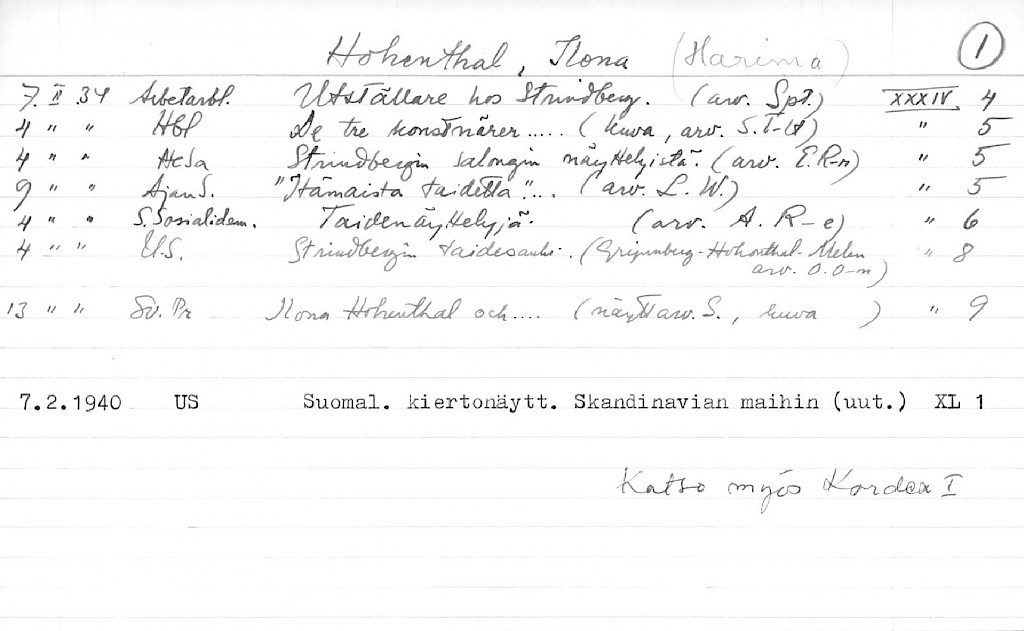 Hohenthal, Ilona (Harima) 1
7. II 34 Arbetarbl. Utställare hos Strindberg. (arv. Spt.) XXXIV 4
4 " " Hbl De tre konstnärer..... (kuva, arv. S.T-ll) " 5
4 " " HeSa Strindbergin salongin näyttelyistä. (arv. E.R-n) " 5
9 " " Ajan S. "Itämaista taidetta"... (arv. L. W.) " 5
4 " " S. Sosialidem. Taidenäyttelyjä. (arv. A. R-e) " 6
4 " " U.S. Strindbergin taidesalki. (Gripenberg-Hohenthal-Melen
arv. O.O-n) " 8
13 " " Sv. Pr Ilona Hohenthal och.... (näytt arv. S., kuva ) " 9
7.2.1940 US Suomal. kiertonäytt. Skandinavian maihin (uut.) XL 1
Katso myös Kordex I